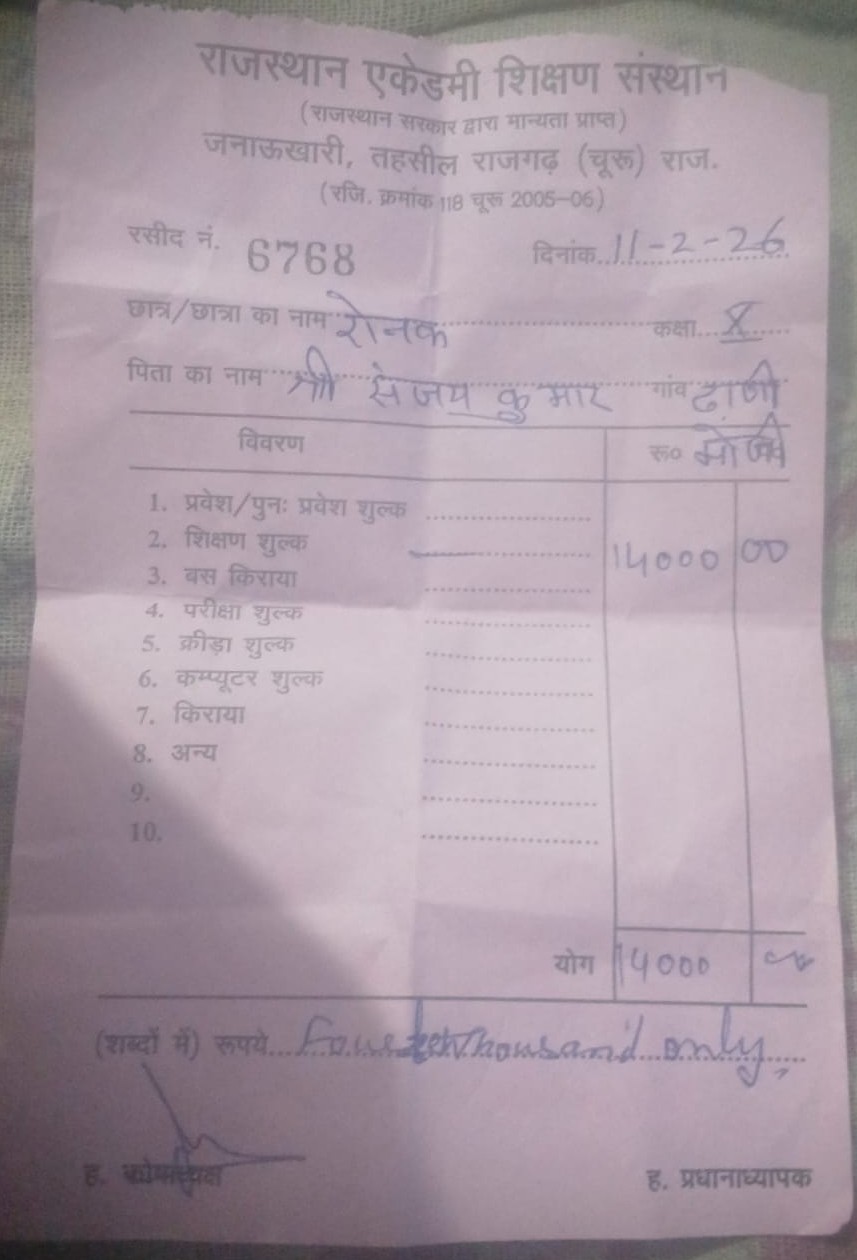 राजस्थान एकेडमी शिक्षण संस्थान
(राजस्थान सरकार द्वारा मान्यता प्राप्त)
जनाऊखारी, तहसील राजगढ़ (चूरू) राज.
(रजि. क्रमांक 118 चूरू 2005-06)
रसीद नं. 6768 दिनांक 11-2-26
छात्र/छात्रा का नाम रोनक कक्षा X
पिता का नाम श्री संजय कुमार गांव ढाणी
विवरण रू०
1. प्रवेश/पुनः प्रवेश शुल्क
2. शिक्षण शुल्क 14000 00
3. बस किराया
4. परीक्षा शुल्क
5. क्रीड़ा शुल्क
6. कम्प्यूटर शुल्क
7. किराया
8. अन्य
9.
10.
योग 14000
(शब्दों में) रूपये thousand only
ह. कोषाध्यक्ष ह. प्रधानाध्यापक